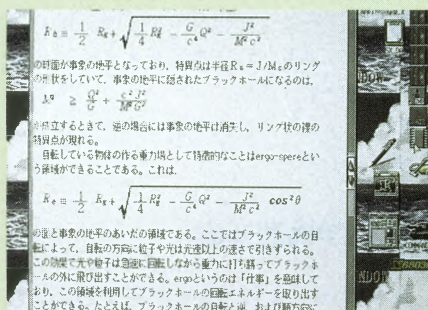 R e ≡ 1/2 Rg + √(1/4 Rg² − G/c⁴ Q² − J²/M²c²)
の球面が事象の地平となっており、特異点は半径Rs＝J/Mcのリング
の形状をしていて、事象の地平に隠されたブラックホールになるのは、
M² ≥ Q²/G + c²J²/M²G²
が成立するときで、逆の場合には事象の地平は消失し、リング状の裸の
特異点が現れる。
自転している物体の作る重力場として特徴的なことはergo-spereとい
う領域ができることである。これは、
R e ≡ 1/2 Rg + √(1/4 Rg² − G/c⁴ Q² − J²/M²c² cos²θ)
の面と事象の地平のあいだの領域である。ここではブラックホールの自
転によって、自転の方向に粒子や光は光速以上の速さで引きずられる。
この効果で光や粒子は急速に回転しながら重力に打ち勝ってブラックホ
ールの外に飛び出すことができる。ergoというのは「仕事」を意味して
おり、この領域を利用してブラックホールの回転エネルギーを取り出す
ことができる。たとえば、ブラックホールの自転と逆、および順方向に